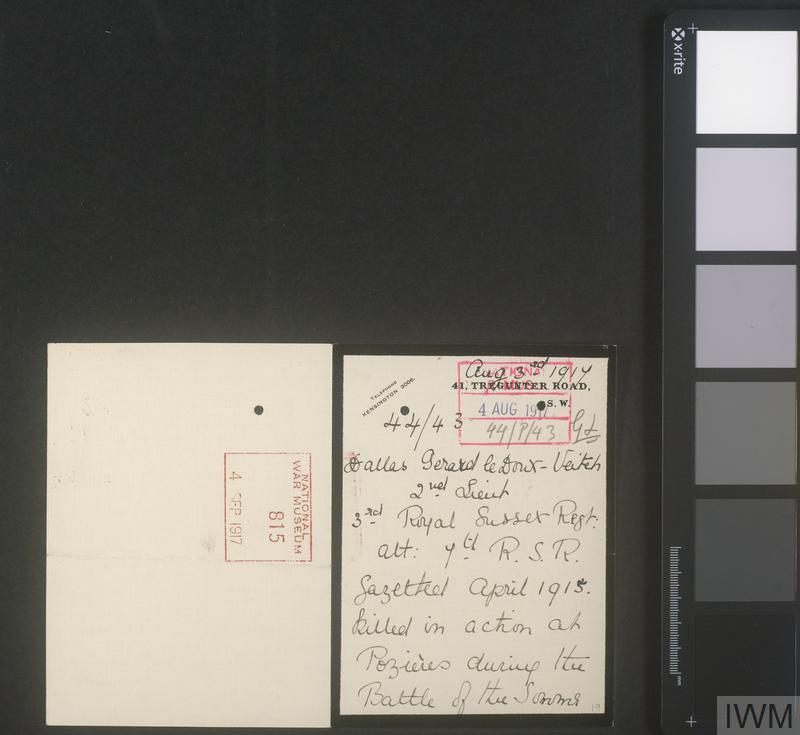 x-rite
NATIONAL
WAR MUSEUM
815
4 SEP 1917
Aug 3rd 1917
TELEPHONE
KENSINGTON 2006.
41, TREGUNTER ROAD,
S.W.
4 AUG 191
44/43
44/P/43
Dallas Gerard le Doux-Veitch
2nd Lieut
3rd Royal Sussex Regt.
att: 7th R.S.R.
Gazetted April 1915.
Killed in action at
Pozières during the
Battle of the Somme
19
mm
IWM